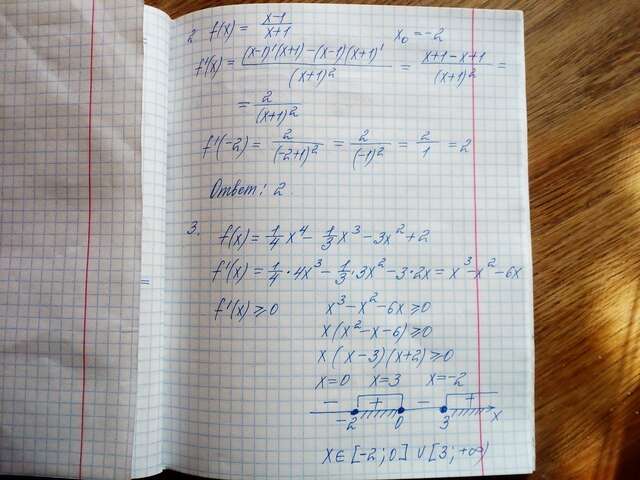 2 f(x) = (x-1)/(x+1) x₀ = -2
f'(x) = ((x-1)'(x+1) - (x-1)(x+1)')/(x+1)² = (x+1-x+1)/(x+1)² =
= 2/(x+1)²
f'(-2) = 2/(-2+1)² = 2/(-1)² = 2/1 = 2
Ответ: 2
3.
f(x) = 1/4 x⁴ - 1/3 x³ - 3x² + 2
f'(x) = 1/4 · 4x³ - 1/3 · 3x² - 3 · 2x = x³ - x² - 6x
f'(x) ⩾ 0 x³ - x² - 6x ⩾ 0
x(x² - x - 6) ⩾ 0
x(x-3)(x+2) ⩾ 0
x=0 x=3 x=-2
- + - +
-2 0 3 x
x ∈ [-2; 0] ∪ [3; +∞)